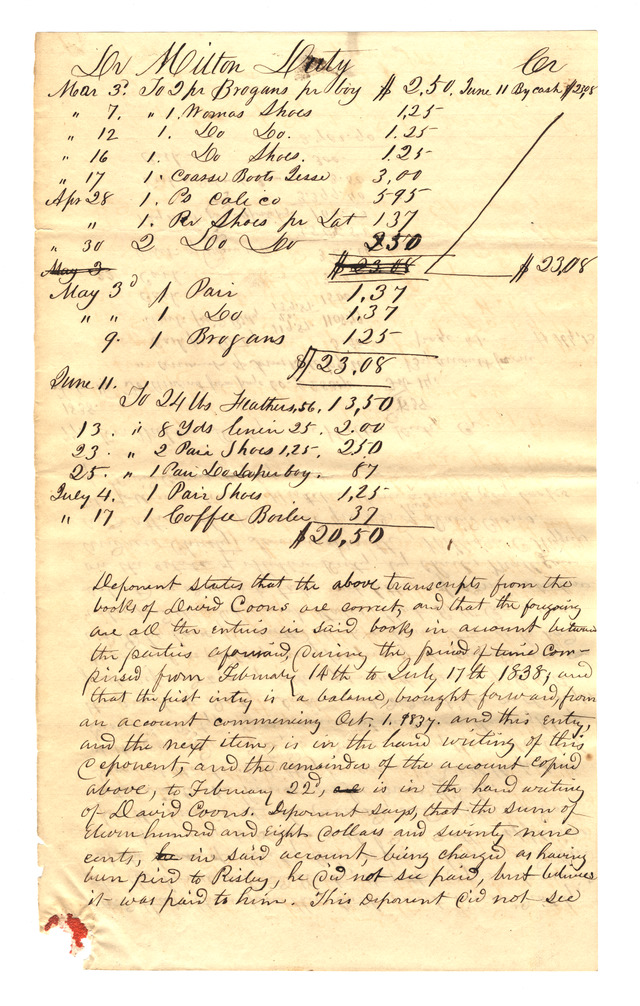 Dr Milton Duty Cr
Mar 3d To 2 pr Brogans pr boy $ 2,50. June 11 By cash $23,08
" 7. " 1. Womas Shoes 1,25
" 12 1. Do Do. 1.25
" 16 1. Do Shoes. 1.25
" 17 1. Coarse Boots Jesse 3,00
Apr 28 1. Ps Calico 595
" 1. Pr Shoes pr Lat 137
" 30 2 Do Do 250
May 3 $23.08 $23,08
May 3d 1 Pair 1,37
" " 1 Do 1,37
9. 1 Brogans 125
$23.08
June 11.
To 24 lbs Feathers, 56. 13,50
13. " 8 Yds linin 25. 2.00
23. " 2 Pair Shoes 1,25. 250
25. " 1 Pair Do boy. 87
July 4. 1 Pair Shoes 1,25
" 17 1 Coffee Boiler 37
$20,50
Deponent states that the above transcripts from the
books of David Coons are correct, and that the forgoing
are all the entries in said books in account between
the parties aforesaid, during the period of time com-
prised from February 14th to July 17th 1838; and
that the first intry is a balance, brought forward, from
an account commencing Oct. 1. 1837. and this entry,
and the next item, is in the hand writing of this
deponent, and the remainder of the account copied
above, to February 22d, is in the hand writing
of David Coons. Deponent says, that the sum of
Elven hundred and eight dollars and swinty nine
cents, in said account being charged as having
ben pird to Risley, he did not see paid, but belives
it was paid to him. This deponent did not see